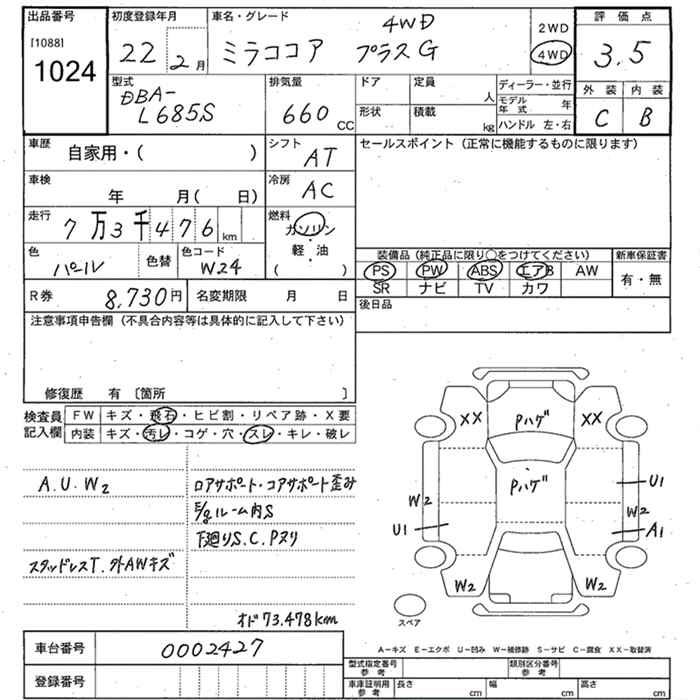 出品番号 初度登録年月 車名・グレード 4WD 2WD 評価点
[1088] 22 2月 ミラココア プラスG 4WD 3.5
1024
型式 排気量 ドア 定員 人 ディーラー・並行 外装 内装
DBA-
L685S 660 CC 形状 積載 kg モデル年式 年 C B
ハンドル 左・右
車歴 自家用・( ) シフト AT セールスポイント (正常に機能するものに限ります)
車検 年 月( 日) 冷房 AC
走行 7万3千476 km 燃料 ガソリン
軽・油
( )
色 パール 色替 色コード W24
装備品 (純正品に限り○をつけてください) 新車保証書
PS PW ABS エアB AW 有・無
SR ナビ TV カワ
R券 8,730円 名変期限 月 日 後日品
注意事項申告欄 (不具合内容等は具体的に記入して下さい)
修復歴 有 [箇所 ]
検査員 FW キズ・飛石・ヒビ割・リペア跡・X要
記入欄 内装 キズ・汚レ・コゲ・穴・スレ・キレ・破レ
A.U.W2 ロアサポート・コアサポート歪み
E/gルーム内S
下廻りS.C.Pヌリ
スタッドレスT.外AWキズ
オド73.478km
XX Pハゲ XX
Pハゲ
W2 U1
U1 W2
A1
W2 W2
スペア
A-キズ E-エクボ U-凹み W-補修跡 S-サビ C-腐食 XX-取替済
車台番号 0002427
登録番号
型式指定番号 参考 類別区分番号 参考
車庫証明用 参考 長さ cm 幅 cm 高さ cm